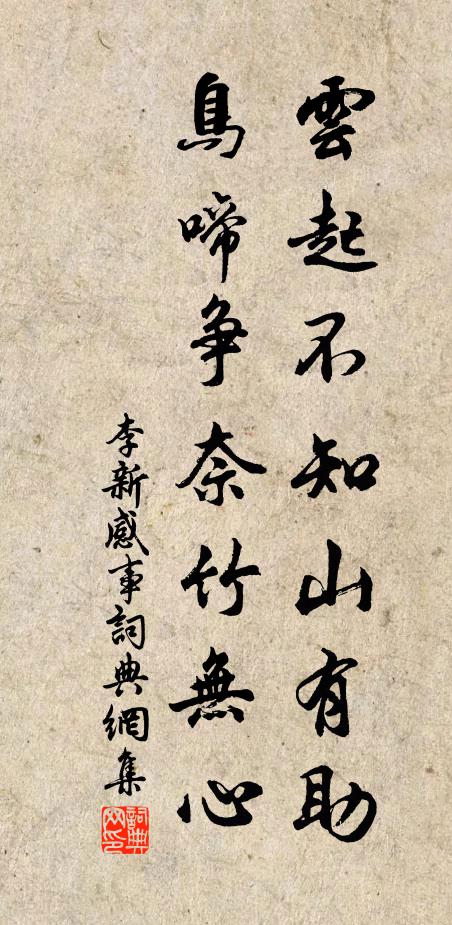 雲起不知山有助
鳥啼争奈竹無心
李新感事詞典網集
詞典网印